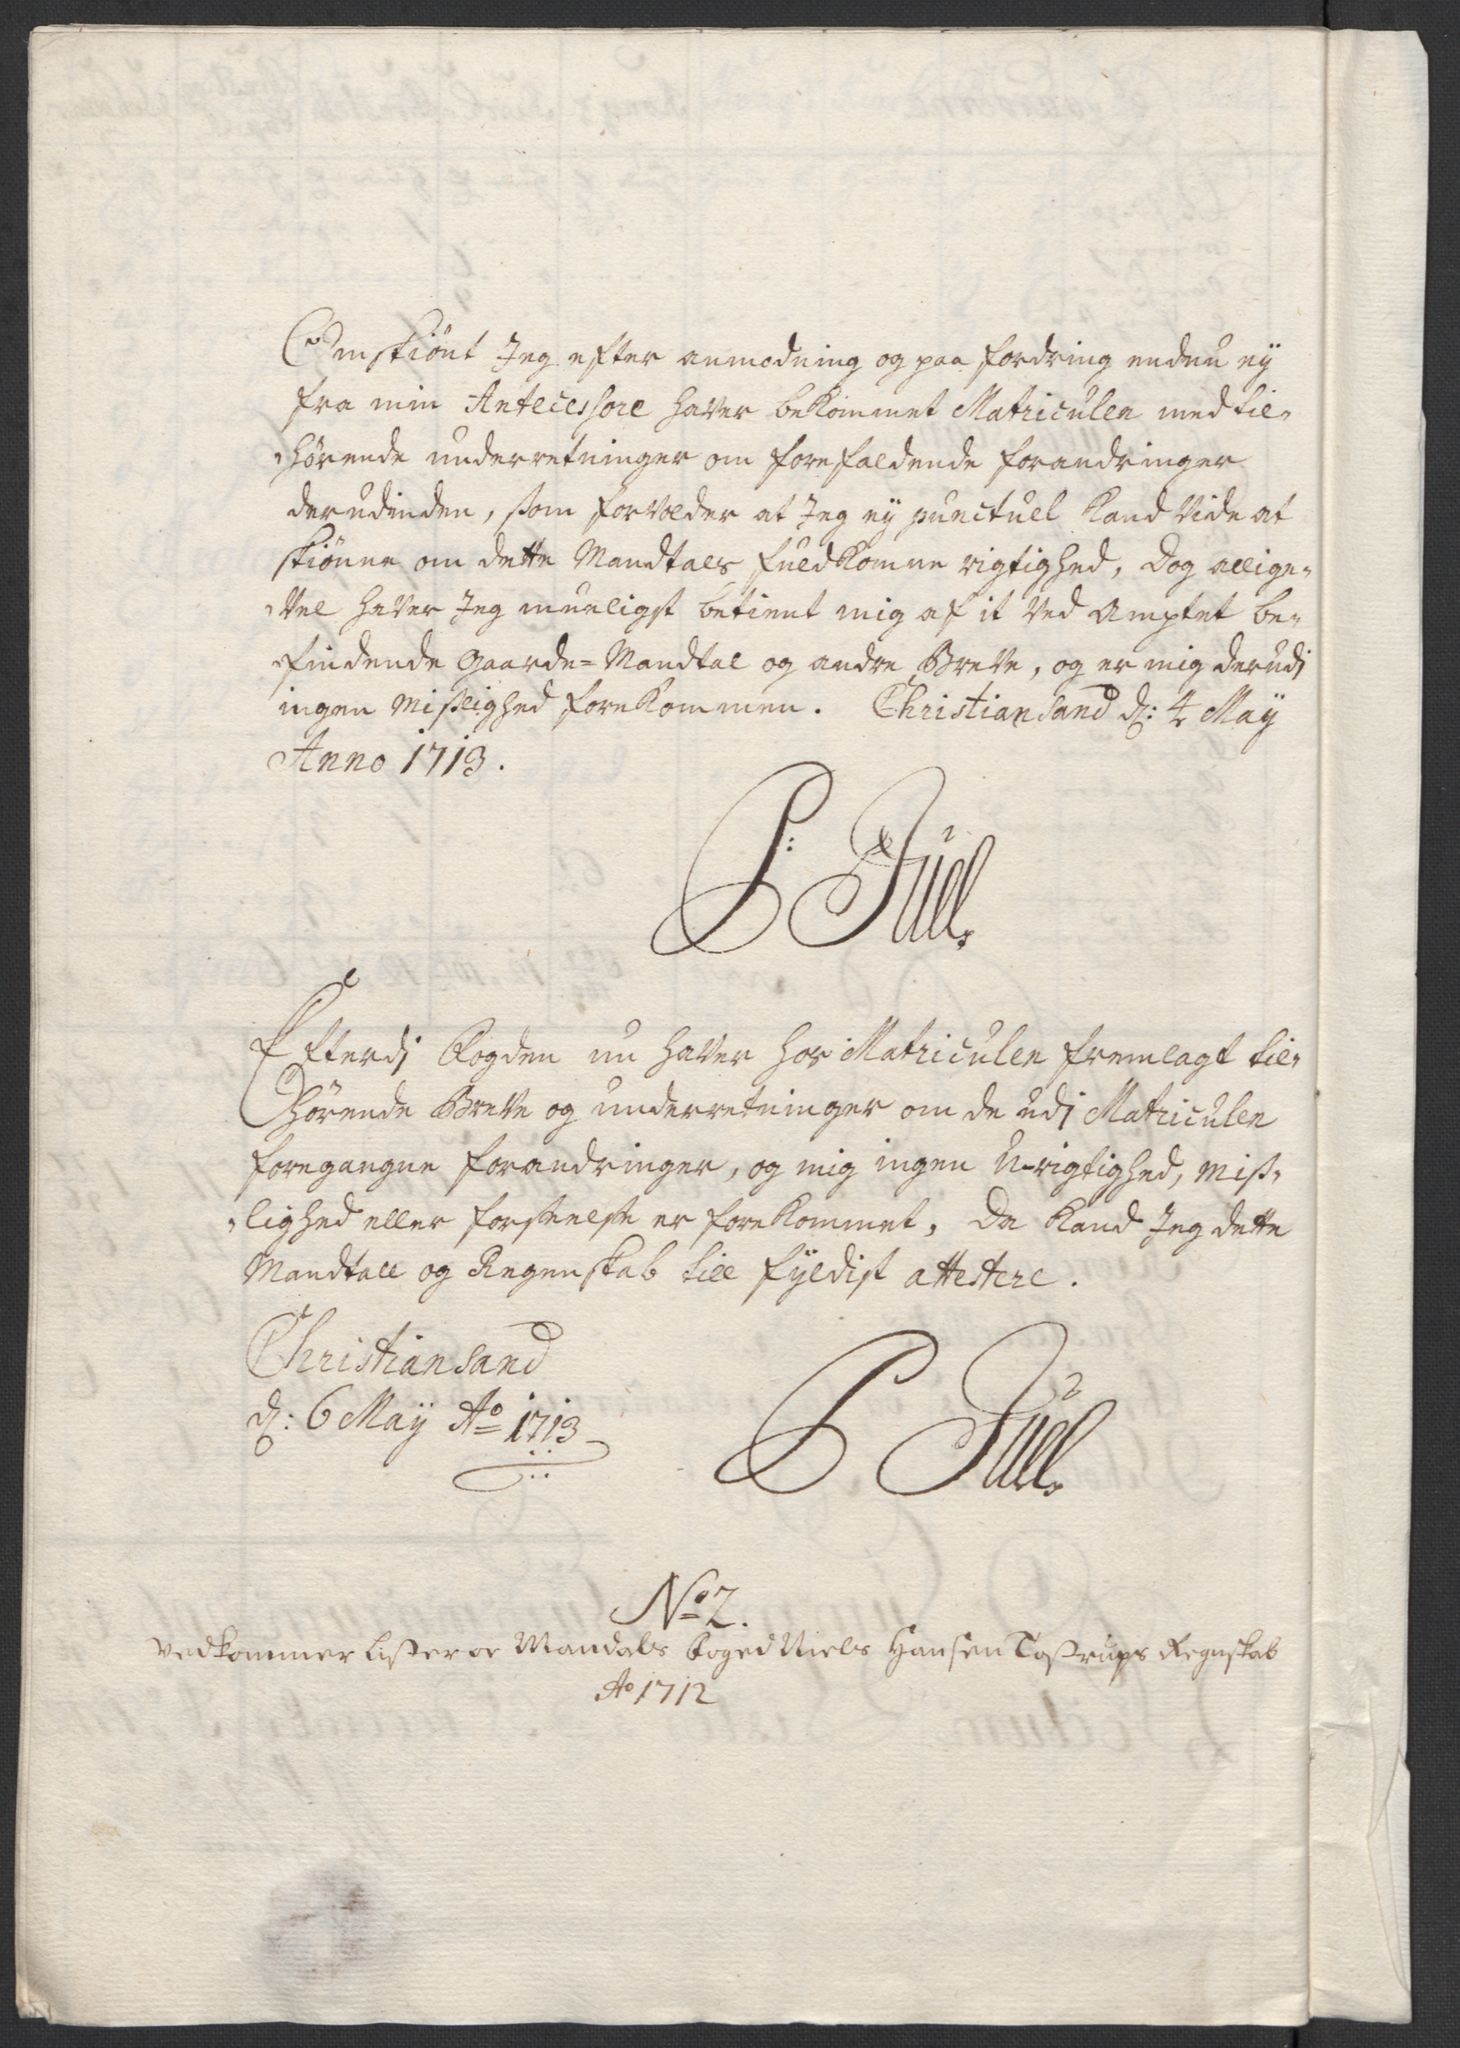 Omskiønt Jeg efter anmodning og paa fordring endnu ey
fra min Antecessore haver bekommet Matriculen med til-
hørende underretninger om forefaldende forandringer
derudinden, som forvolder at Jeg ey punctuel kand vide at
skiønne om dette Mandtals fuldkomne rigtighed, Dog allige-
vel haver Jeg mueligst betient mig af it ved Amptet be-
findende Gaarde=Mandtal og andre Breve, og er mig derudj
ingen Mislighed forekommen. Christiansand d: 4 Maÿ
Anno 1713.
P: Juel.
Efterdj Fogden nu haver hos Matriculen fremlagt til-
hørende Breve og underretninger om de udj Matriculen
foregangne forandringer, og mig ingen U-rigtighed, Miß-
lighed eller forseelse er forekommet, Da kand Jeg dette
Mandtall og Regenskab till fyldist attestere.
Christiansand
d: 6 Maÿ Ao 1713
P Juel.
No 2.
Vedkommer Lister oc Mandals foged Niels Hansen Tostrups Regnskab
Ao 1712